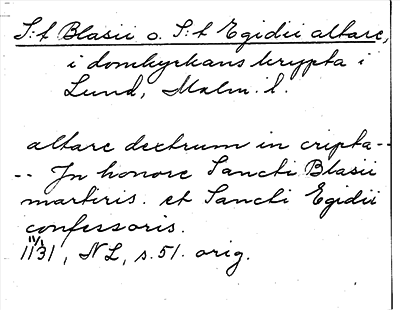 S:t Blasii o. S:t Egidii altare,
i domkyrkans krypta i
Lund, Malm. l.
altare dextrum in cripta --
-- In honore Sancti Blasii
martiris. et Sancti Egidii
confessoris.
11 31, NL, s. 51. orig.